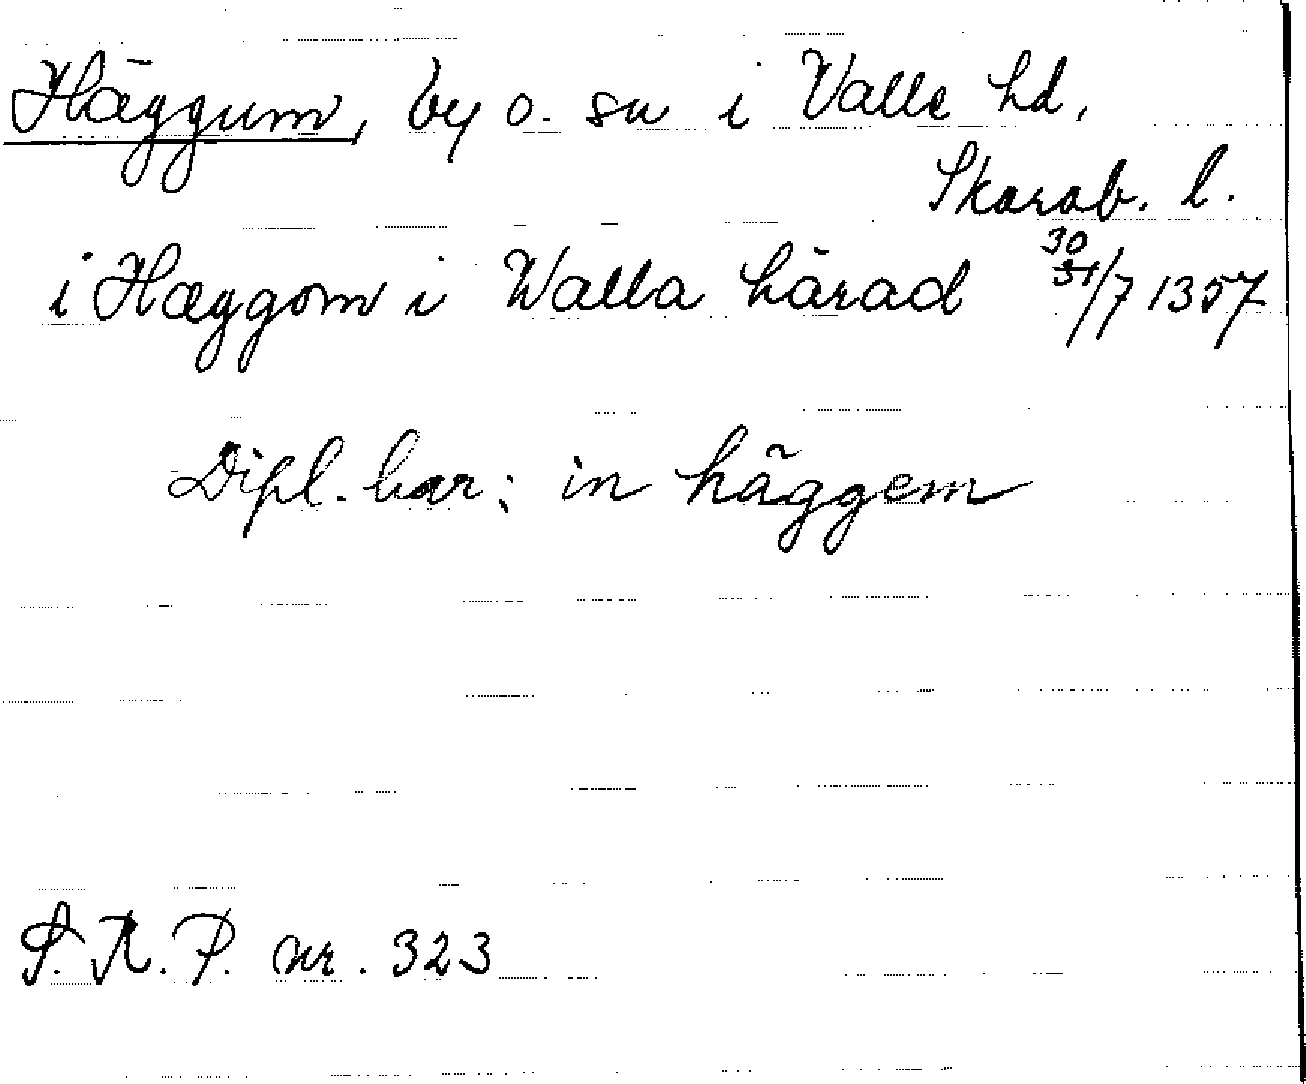 Häggum, by o. sn i Valle hd,
Skarab. l.
i Hæggom i Walla härad 30 31/7 1357
Dipl. har: in häggem
S. R. P. nr. 323